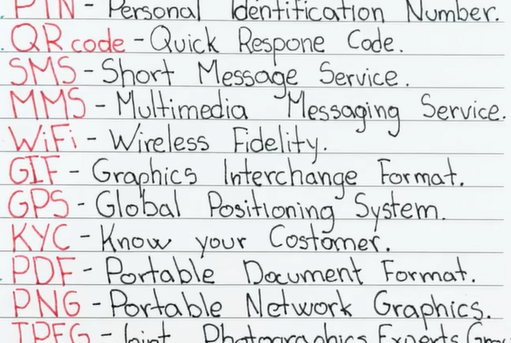 PIN - Personal Identification Number.
QR code - Quick Respone Code.
SMS - Short Message Service.
MMS - Multimedia Messaging Service.
WiFi - Wireless Fidelity.
GIF - Graphics Interchange Format.
GPS - Global Positioning System.
KYC - Know your Costomer.
PDF - Portable Document Format.
PNG - Portable Network Graphics.
JPEG - Joint Photographics Experts